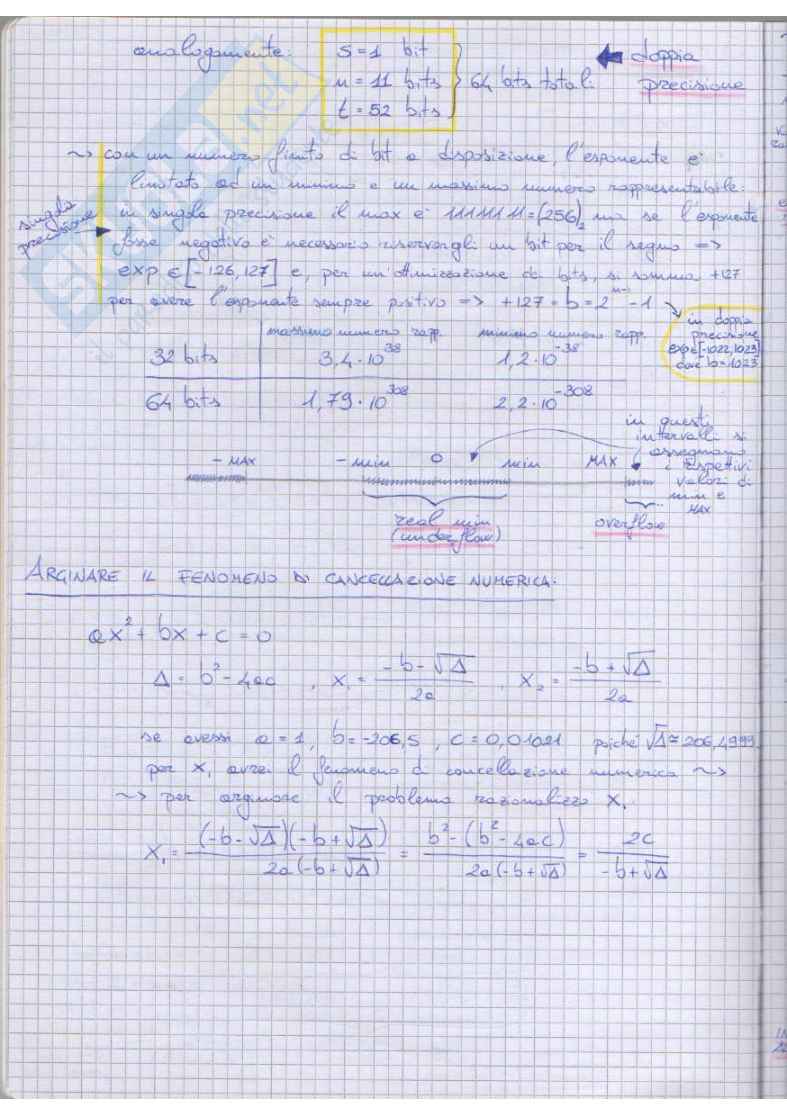 analogamente: S = 1 bit
m = 11 bits } 64 bits totali
t = 52 bits
doppia
precisione
singola
precisione
~> con un numero finito di bit a disposizione, l'esponente è
limitato ad un minimo e un massimo numero rappresentabile:
in singola precisione il max è 11111111=(256)₂ ma se l'esponente
fosse negativo è necessario riservargli un bit per il segno =>
exp ∈ [-126, 127] e, per un'ottimizzazione di bits, si somma +127
per avere l'esponente sempre positivo => +127 = b = 2^(m-1) - 1
in doppia
precisione
exp∈[-1022,1023]
dove b=1023
massimo numero rapp. minimo numero rapp.
32 bits 3,4·10^38 1,2·10^-38
64 bits 1,79·10^308 2,2·10^-308
in questi
intervalli si
assegnano
i rispettivi
valori di
min e
MAX
- MAX - min 0 min MAX
real min overflow
(underflow)
ARGINARE IL FENOMENO DI CANCELLAZIONE NUMERICA.
ax² + bx + c = 0
Δ = b² - 4ac , X₁ = (-b - √Δ)/2a , X₂ = (-b + √Δ)/2a
se avessi a = 1, b = -206,5 , c = 0,01021 poiché √Δ ≅ 206,4999
per X₁ avrei il fenomeno di cancellazione numerica ~>
~> per arginare il problema razionalizzo X₁
X₁ = (-b-√Δ)(-b+√Δ)/2a(-b+√Δ) = b²-(b²-4ac)/2a(-b+√Δ) = 2c/-b+√Δ